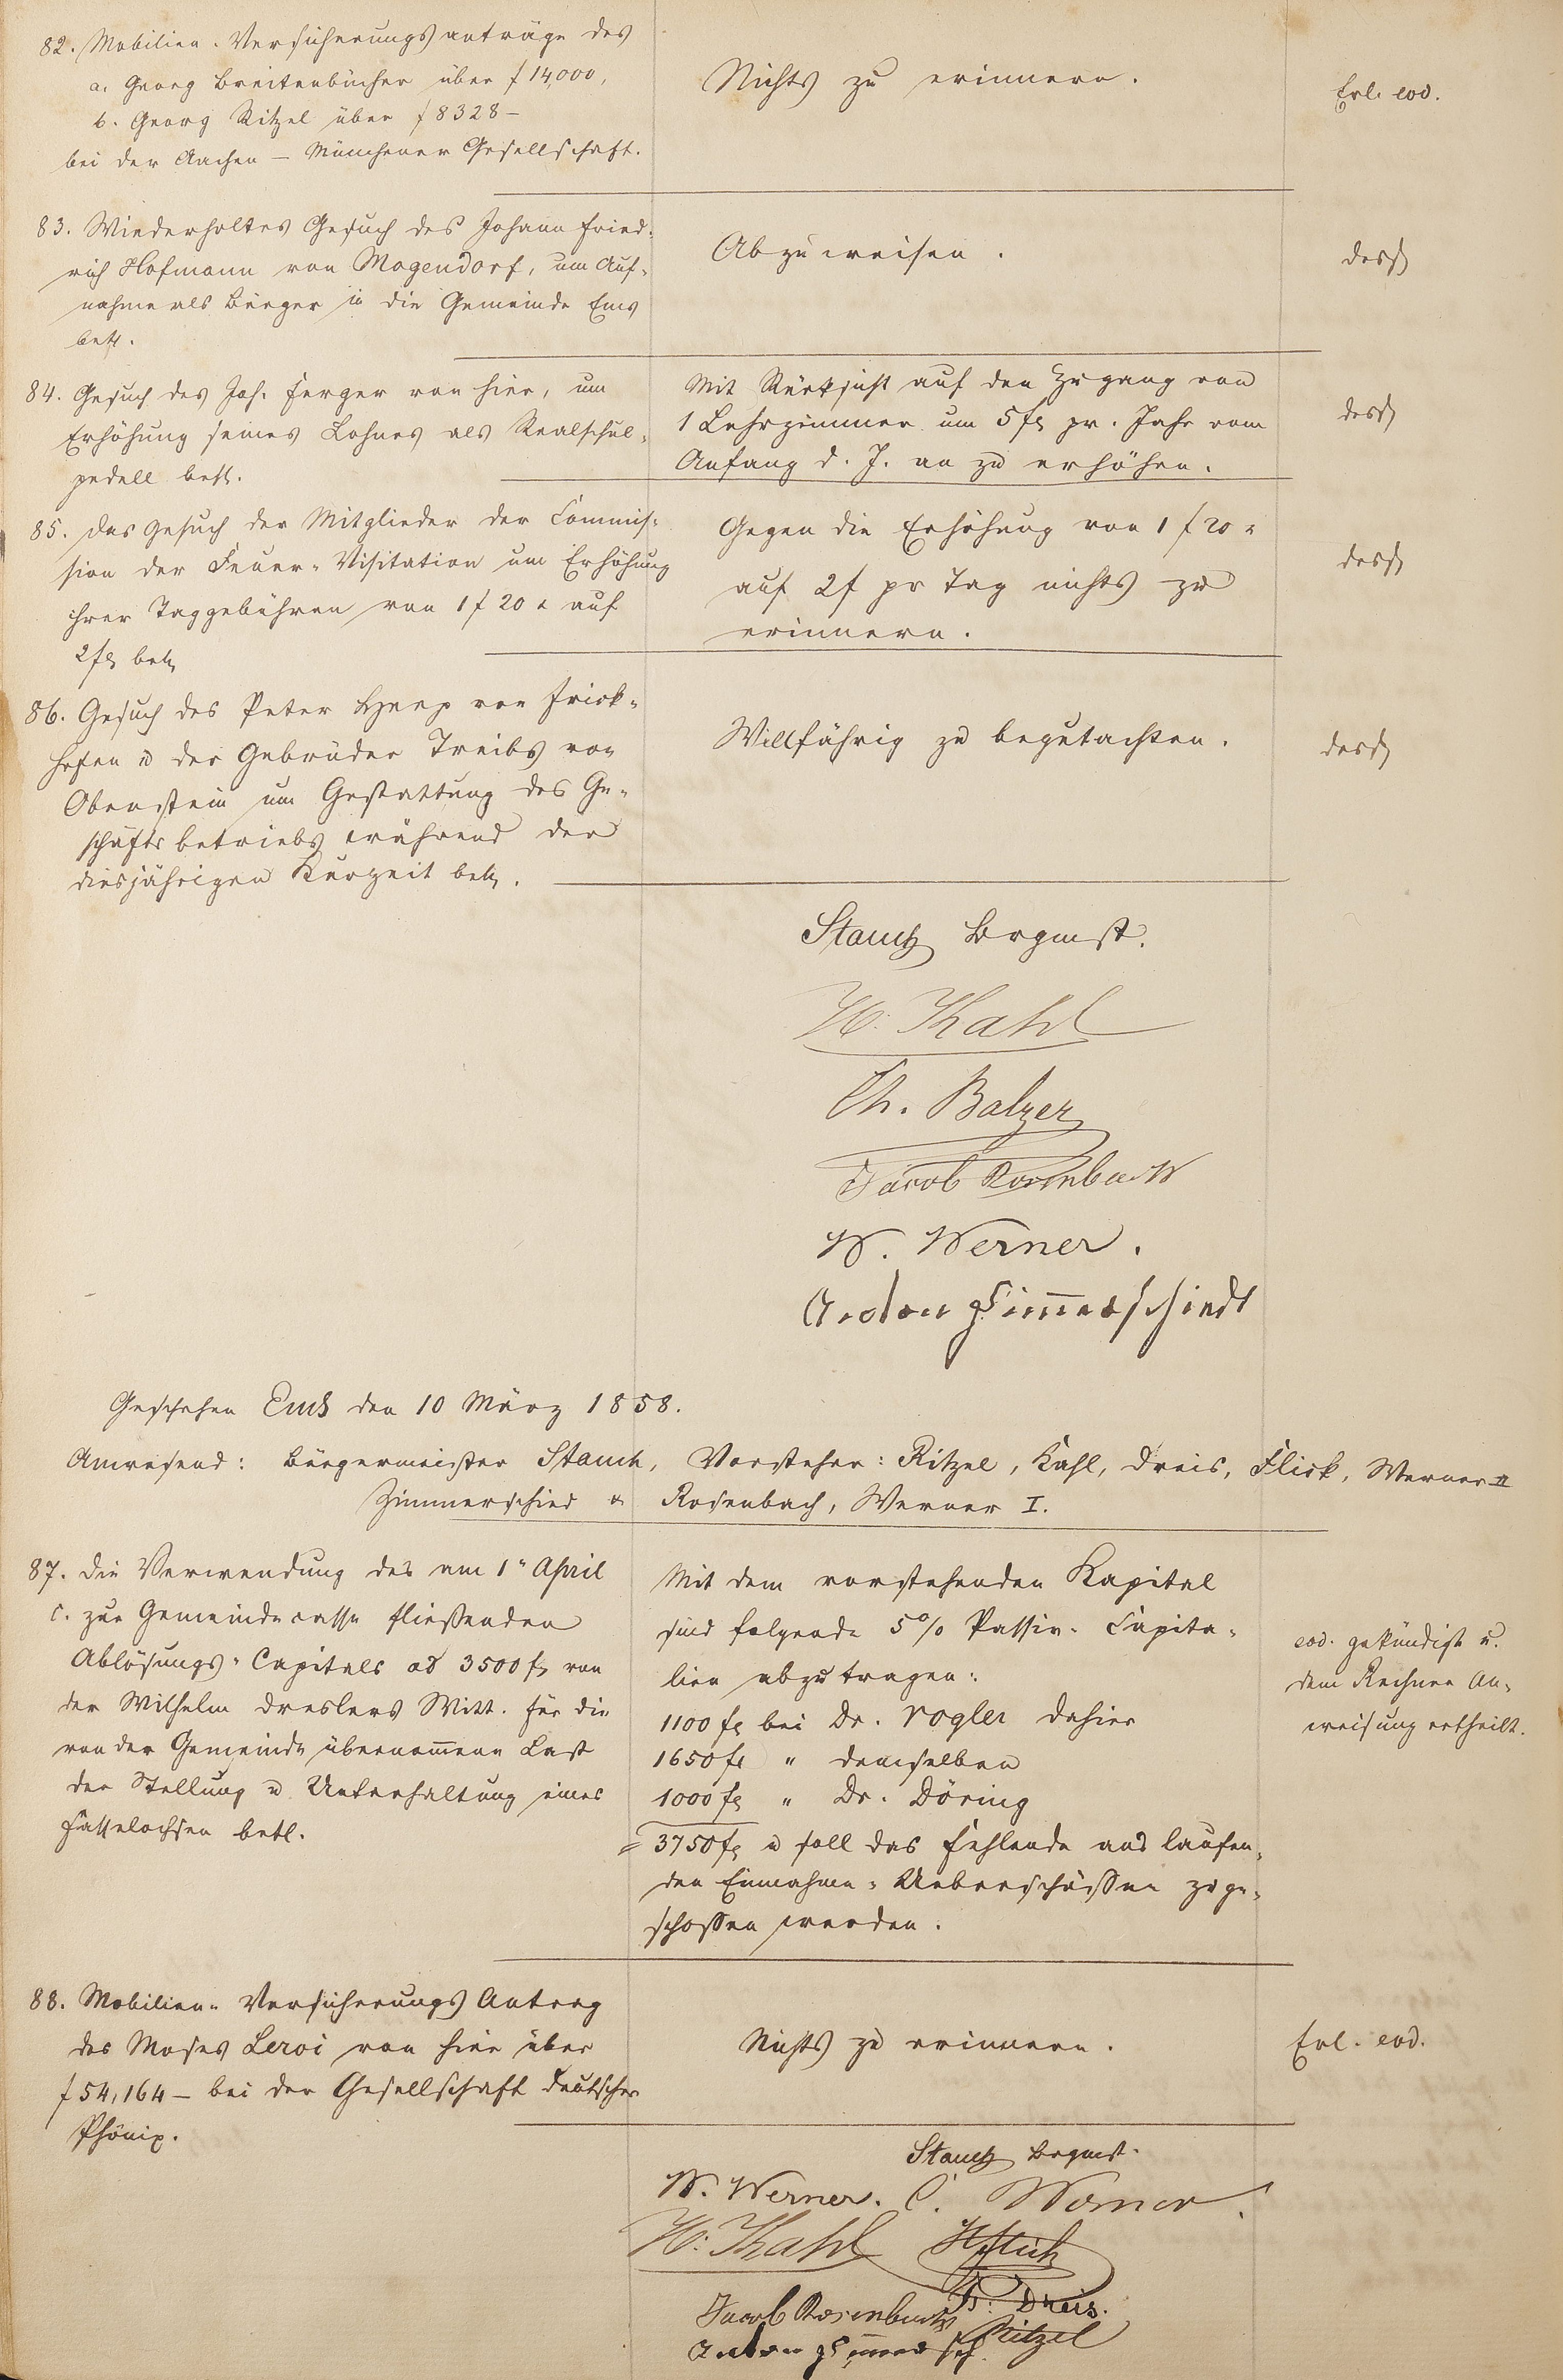 82. Mobilien-Versicherungsanträge des
a. Georg Breitenbücher über f 14,000,
b. Georg Ritzel über f 8328 –
bei der Aachen – Münchener Gesellschaft.
Nichts zu erinnern.
Erl. eod.
83. Wiederholtes Gesuch des Johann Fried-
rich Hofmann von Mogendorf, um Auf-
nahme als Bürger in die Gemeinde Ems
betr.
Abzuweisen.
dess
84. Gesuch des Joh. Ferger von hier, um
Erhöhung seines Lohnes als Realschul-
pedell betr.
Mit Rücksicht auf den Zugang von
1 Lehrzimmer um 5 fl pr. Jahr vom
Anfang d. J. an zu erhöhen.
dess
85. Das Gesuch der Mitglieder der Commis-
sion der Feuer-Visitation um Erhöhung
ihrer Taggebühren von 1 f 20 x auf
2 fl betr
Gegen die Erhöhung von 1 f 20 x
auf 2 f pr Tag nichts zu
erinnern.
dess
86. Gesuch des Peter von Frick-
hofen u der Gebrüder Treibs von
Oberstein um Gestattung des Ge-
schäftsbetriebs während der
diesjährigen Kurzeit betr.
Willfährig zu begutachten.
dess
Stauch Brgmst.
H. Kahl
Ch. Balzer
Jacob Rosenbach
W. Werner.
Anton Zimerschiedt
Geschehen Ems den 10 März 1858.
Anwesend: Bürgermeister Stauch, Vorsteher: Ritzel, Kahl, Dreis, Flick, Werner II
Zimmerschied u Rosenbach, Werner I.
87. Die Verwendung des am 1n April
c. zur Gemeindecasse fließenden
Ablösungs-Capitals ad 3500 fl von
der Wilhelm Dreslers Witt. für die
von der Gemeinde übernom̅ene Last
der Stellung u Unterhaltung eines
Fasselochsen betr.
Mit dem vorstehenden Kapital
sind folgende 5% Passiv-Capita-
lien abzutragen:
1100 fl bei Dr. Vogler dahier
1650 fl " demselben
1000 fl " Dr. Döring
= 3750 fl u soll das Fehlende aus laufen-
den Einnahme-Ueberschüssen zuge-
schossen werden.
eod. gekündigt u.
dem Rechner An-
weisung ertheilt.
88. Mobilien-Versicherungs Antrag
des Moses Leroi von hier über
f 54,164 – bei der Gesellschaft deutscher
Phönix.
Nichts zu erinnern.
Erl. eod.
Stauch Brgmst.
W. Werner. C. Werner.
H. Kahl H Flick
Dreis.
Jacob Rosenbach Ritzel
Anton Zimersch.